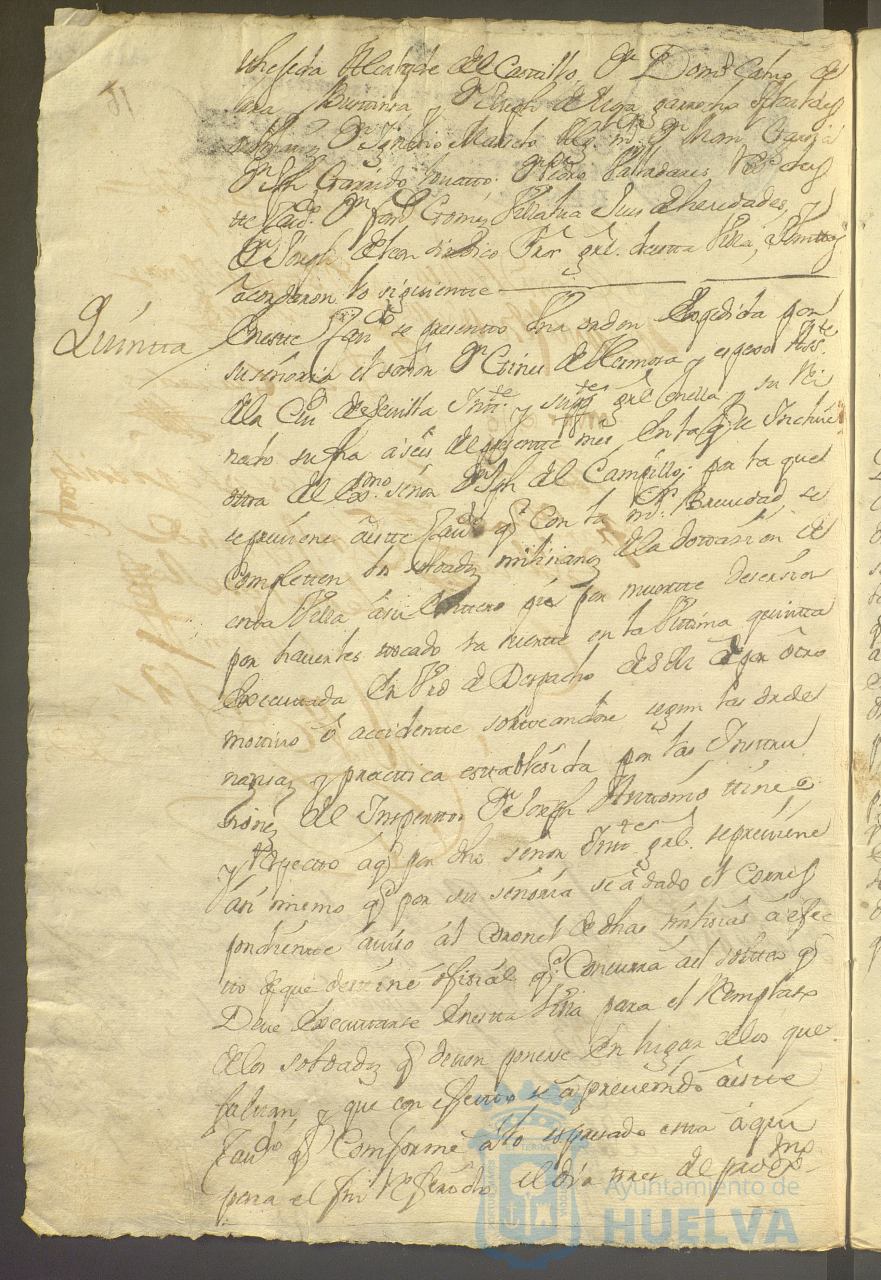 Alcayde del Castillo, Dn Domo Calvo de
lara Buttansa y Dn Joseph de Riza garrocho Alcaldes
Dn Ygnacio Manito Algl mr Dn Man Garzia
Dn Jph Garrido Dn Pedro Valladares
tte Cavdo Dn Gomez Juis de heredades, y
Dn Joseph de leon sindico Pror grl. de esta Villa, y Juntos
acordaron lo siguiente
Quintta
En este Cavdo se presentto Una orden Expedida por
su señoria el señor Dn Gines de Hermosa y espejo Asste
de la Ciud de Sevilla Intte y supte grl en ella y su Rei
nado su fha a seis del presentte mes en la qe se Incluie
ottra del Exmo señor Dn Jph del Campillo; por la que
se previene a este Cavdo qe Con la mr Brevedad se
completten los soldados milicianos de la dottasion de
estta Villa asi el numero qe por muertte desersion
por haverles tocado la suertte en la Ultima quintta
Executtada En Vd de Despacho de S M o por otro
mottivo o accidentte sorteandose segun las orde
nansas y practtica establesida por las Instru
siones del Inspector Dn Joseph Anttonio tine
y Respectto a qe por dho señor Intte grl. se previene
asi mismo qe por su señoria se a dado el Corres
pondientte aviso al Coronel de dhas milisias a efec
to de que destine ofisial qe Concurra a el sortteo qe
Deve Executtarse En esta Villa para el Remplaso
de los soldados qe deven ponerse En lugar de los que
faltan, y que con efectto se a prevenido a este
Cavdo qe Comforme a lo espresado estta aqui
para el fin Referido el dia tres del proxmo
Ayuntamiento de
HUELVA